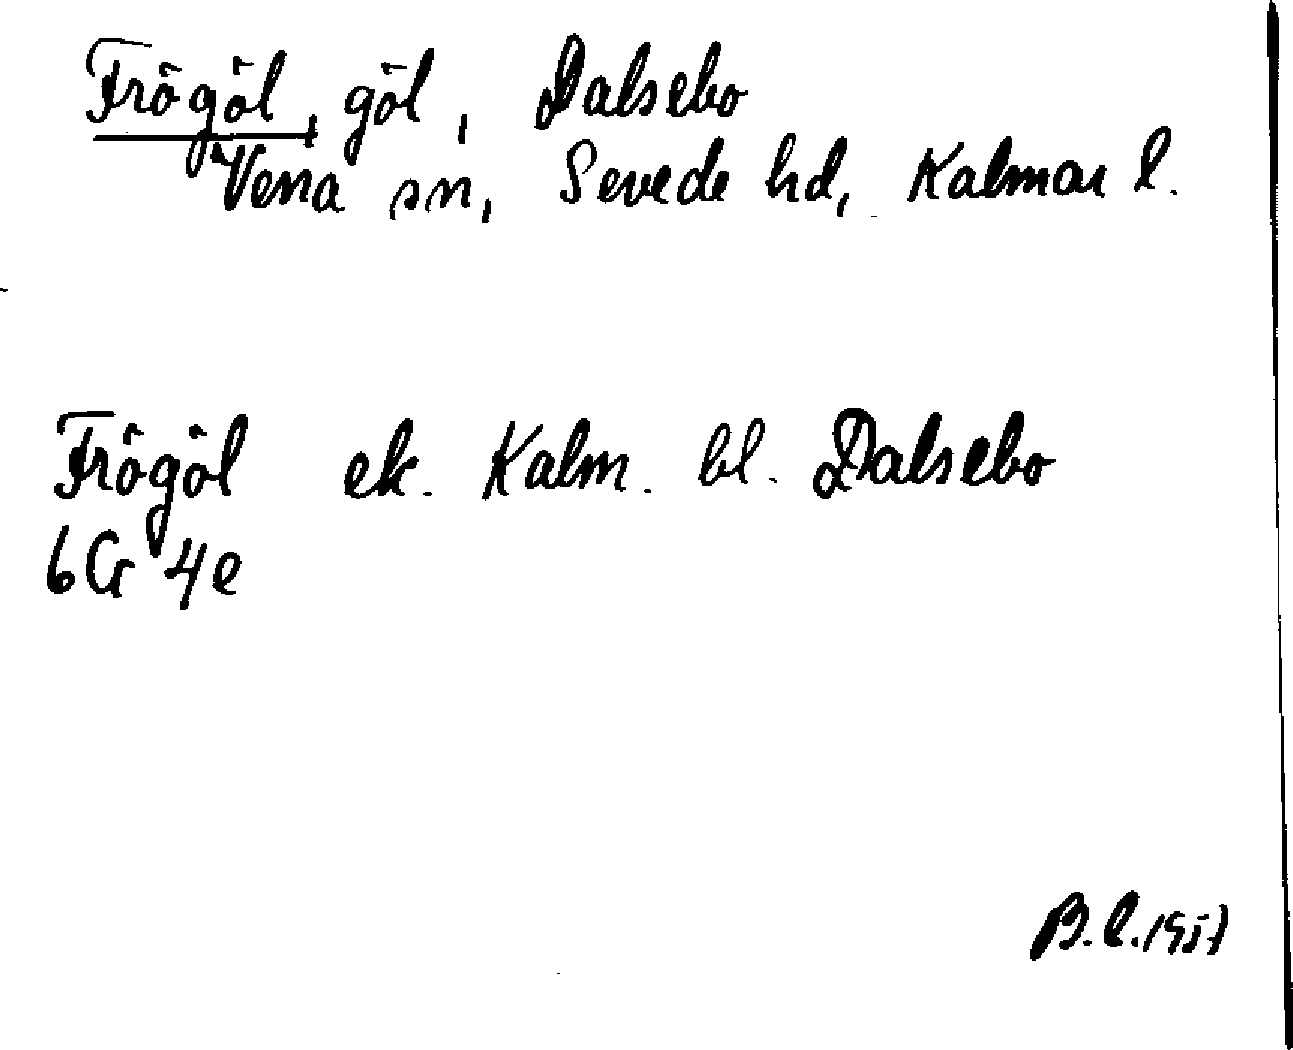 Frögöl, göl, Dalsebo
Vena sn, Sevede hd, Kalmar l.
Frögöl ek. Kalm. bl. Dalsebo
6G 4e
B.L. 1957